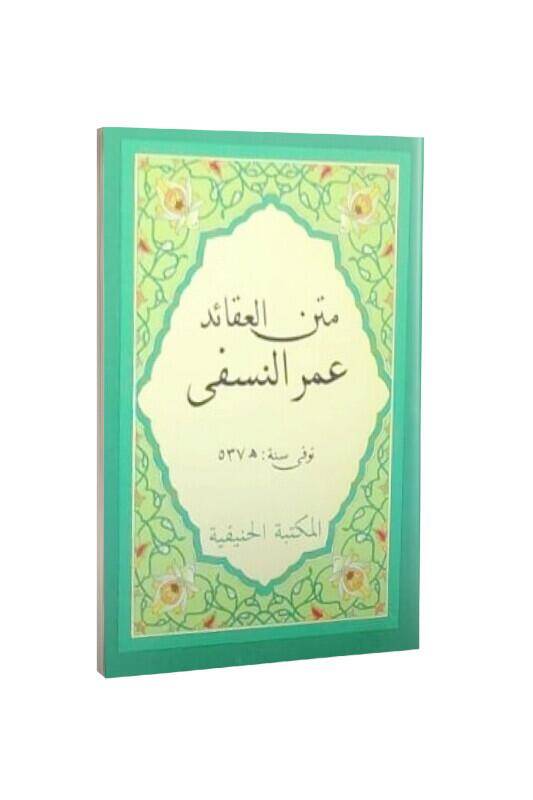 متن العقائد
عمر النسفى
توفى سنة: ٥٣٧ ھ
المكتبة الحنيفية